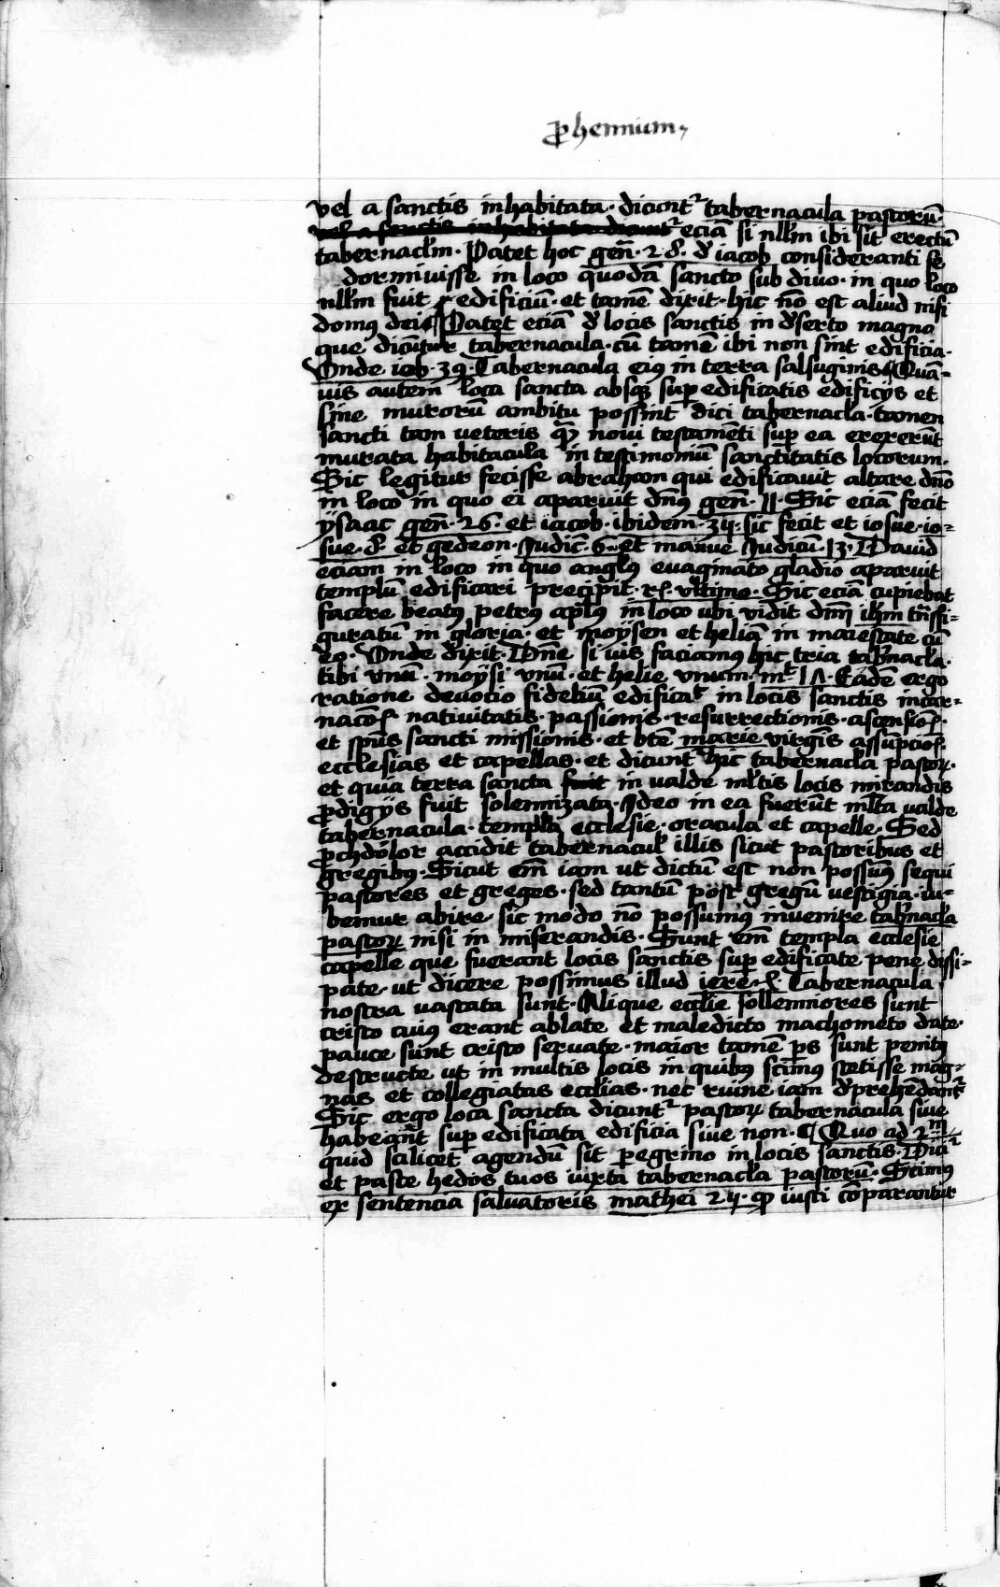 ꝓhennium
vel a sanctis inhabitata · dicunt᷑ tabernacula pastorū ·
vel a sanctis inhabitata dicunt᷑ eciā si nllm̄ ibi sit erectū
tabernaclm̄ · Patet hoc gen̄ · 28 · d' iacob consideranti se
dormiuisse in loco quodā sancto sub diuo · in quo loco
nllm̄ fuit edificiū · et tamē dixit · hic nō est aliud nisi
domꝯ dei ¶ Patet eciā d' locis sanctis in d'serto magno
que dicūtur tabernacula · cū tamē ibi non sint edificia ·
Vnde iob · 39 · Tabernacula eiꝯ in terra salsuginis ¶ Quā-
uis autem loca sancta absqꝫ suꝑ edificatis edificijs et
sine murorū ambitu possint dici tabernacla · tamen
sancti tam veteris qꝫ noui testamēti suꝑ ea erexerūt
murata habitacula in testimoniū sanctitatis locorum ·
Sic legitur fecisse abraham qui edificauit altare dn̄o
in loco in quo ei aparuit dn̄ꝯ gen̄ · 11 · Sic eciam fecit
ysaac gen̄ · 26 · et iacob · ibidem · 3ij · sic fecit et iosue · io-
sue · 8 · et gedeon · Judic̄ · 6 · et manue Judicū · 13 · Dauid
eciam in loco in quo anglꝯ euaginato gladio aparuit
templū edificari precipit · vltimo · Sic eciā cupiebat
facere beatꝯ petrꝯ apl̄ꝯ in loco ubi vidit dn̄m ihm̄ tn̄sfi-
guratū in gloria · et moysen et heliā in maiestate cū
eo · Vnde dixit · Dn̄e si vis faciamꝯ hic tria tab'nacla ·
tibi vnū · moysi vnū · et helie vnum · mt · 17 · Eadē ergo
ratione deuocio fideliū edificat᷑ in locis sanctis incar-
nacōꝭ natiuitatis · passionis · resurrectionis · ascensioꝭ ·
et sp̄us sancti missionis · et bt̄e marie virginis assūpcioꝭ ·
ecclesias et capellas · et dicunt᷑ hic tabernacla pastoꝝ ·
et quia terra sancta fuit in valde ml̄tis locis mirandis
ꝓdigijs fuit solennizata · Ideo in ea fuerūt ml̄ta valde
tabernacula · templa ecclesie · oracula et capelle · Sed
ꝓchdolor accidit tabernacul' illis sicut pastoribus et
gregibꝯ · Sicut em̄ iam ut dictū est non possumꝯ sequi
pastores et greges · sed tantū post gregū vestigia · iu-
bemur abire · sic modo nō possumꝯ inuenire tab'nacla
pastoꝝ nisi in miserandis · Sunt em̄ templa ecclesie
capelle que fuerant locis sanctis suꝑ edificate pene dissi-
pate · ut dicere possimus illud iere · Tabernacula
nostra vastata sunt · Alique ecclīe sollemniores sunt
cristo cuiꝯ erant ablate et maledicto machometo date ·
pauce sunt cristo seruate · maior tamē ꝑs sunt penitꝯ
destructe ut in multis locis in quibꝯ scimus stetisse mag-
nas et collegiatas ecclīas · nec ruine iam d'prehēdant᷑
Sic ergo loca sancta dicunt᷑ pastoꝝ tabernacula siue
habeant suꝑ edificata edificia siue non · ¶ Quo ad 2m
quid scilicet agendū sit ꝑegrino in locis sanctis · Dici
et pasce hedos tuos iuxta tabernacla pastorū · Scimus
ex sentencia saluatoris mathei 2ij · ꝙ iusti cōparantur